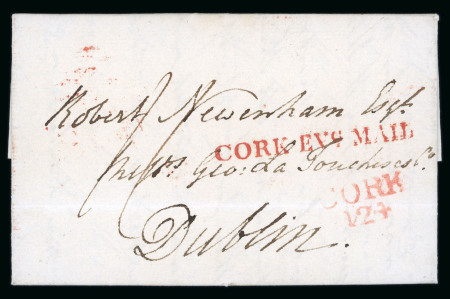 Robert Newenham Esqr.
CORK EVG MAIL
Messrs Geo: La Touche & Co
CORK
124
Dublin.